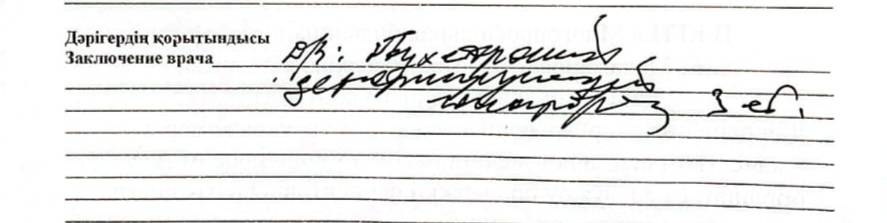 Дәрігердің қорытындысы
Заключение врача Др: Двухсторонний
деформирующий
гонартроз 3 ст.